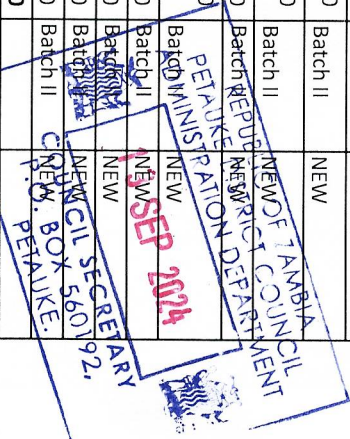 0 Batch II NEW
0 Batch II NEW
0 Batch II NEW
0 Batch II NEW
0 Batch II NEW
0 Batch II NEW
0 Batch II NEW
0
REPUBLIC OF ZAMBIA
PETAUKE DISTRICT COUNCIL
ADMINISTRATION DEPARTMENT
SEP 2024
COUNCIL SECRETARY
P.O. BOX 560192,
PETAUKE.